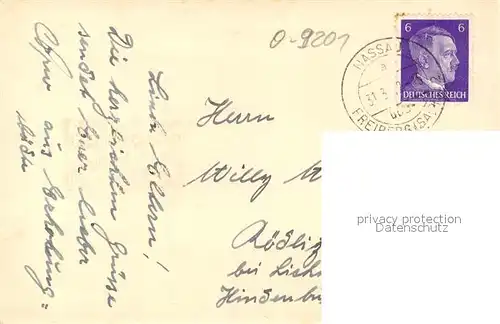 O-9201
6 6
DEUTSCHES REICH
NASSAU
31.3
FREIBERG (SA
Liebe Eltern!
Die herzlichsten Grüsse
sendet Euer lieber
aus Erholung
Herrn
Willy
Rödlitz
bei
Hindenbu
privacy protection
Datenschutz